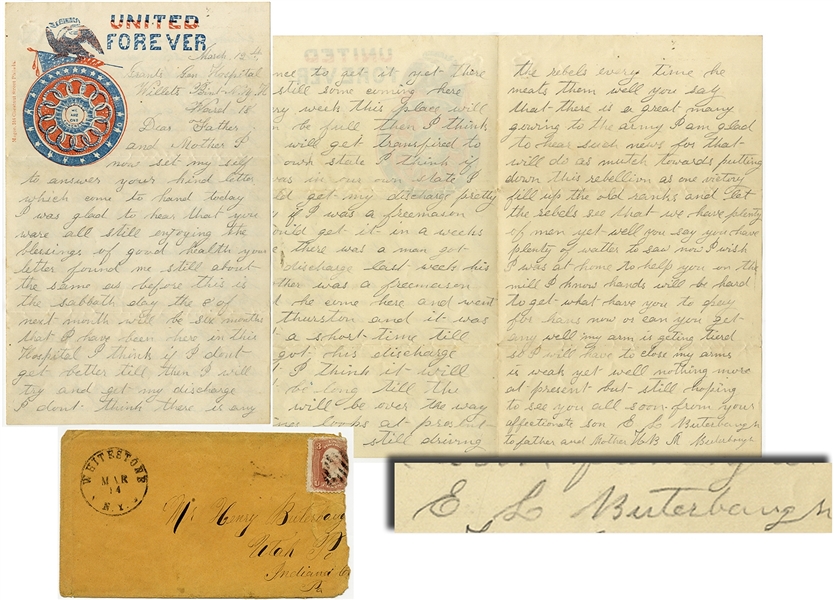 UNITED
FOREVER
March 12th
Grants Gen Hospital
Willets Point N.Y. H
Ward 18
Dear Father
and Mother I
now set my self
to answer your kind letter
which come to hand today
I was glad to hear that you
ware all still enjoying the
blessings of good health your
letter found me still about
the same as before this is
the sabbath day the 8 of
next month will be six months
that I have been here in this
Hospital I think if I dont
get better till then I will
try and get my discharge
I dont think there is any
nce to get it yet there
still some coming here
ry week this place will
be full then I think
will get transfired to
own state I think if
was in our own state I
ld get my discharge pretty
if I was a freemason
ould get it in a weeks
there was a man got
discharge last week his
ther was a freemason
he come here and went
thurston and it was
a short time till
got his discharge
I think it will
be long till the
will be over the way
looks at
still driving
the rebels every time he
meats them well you say
that there is a great many
gowing to the army I am glad
to hear such news for that
will do as mutch towards putting
down this rebellion as one victory
fill up the old ranks and let
the rebels see that we have plenty
of men yet well you say you have
plenty of watter to saw now I wish
I was at home to help you in the
mill I know hands will be hard
to get what have you to pay
for hans now or can you get
any well my arm is geting tierd
so I will have to close my arms
is weak yet well nothing more
at present but still hoping
to see you all soon from your
affectionate son E L Buterbaugh
to father and Mother H B Buterbaugh
WHITESTONE
MAR
14
N.Y.
Mr Henry Buterbaug
Utah P
Indiana Co
Pa
E L Buterbaugh